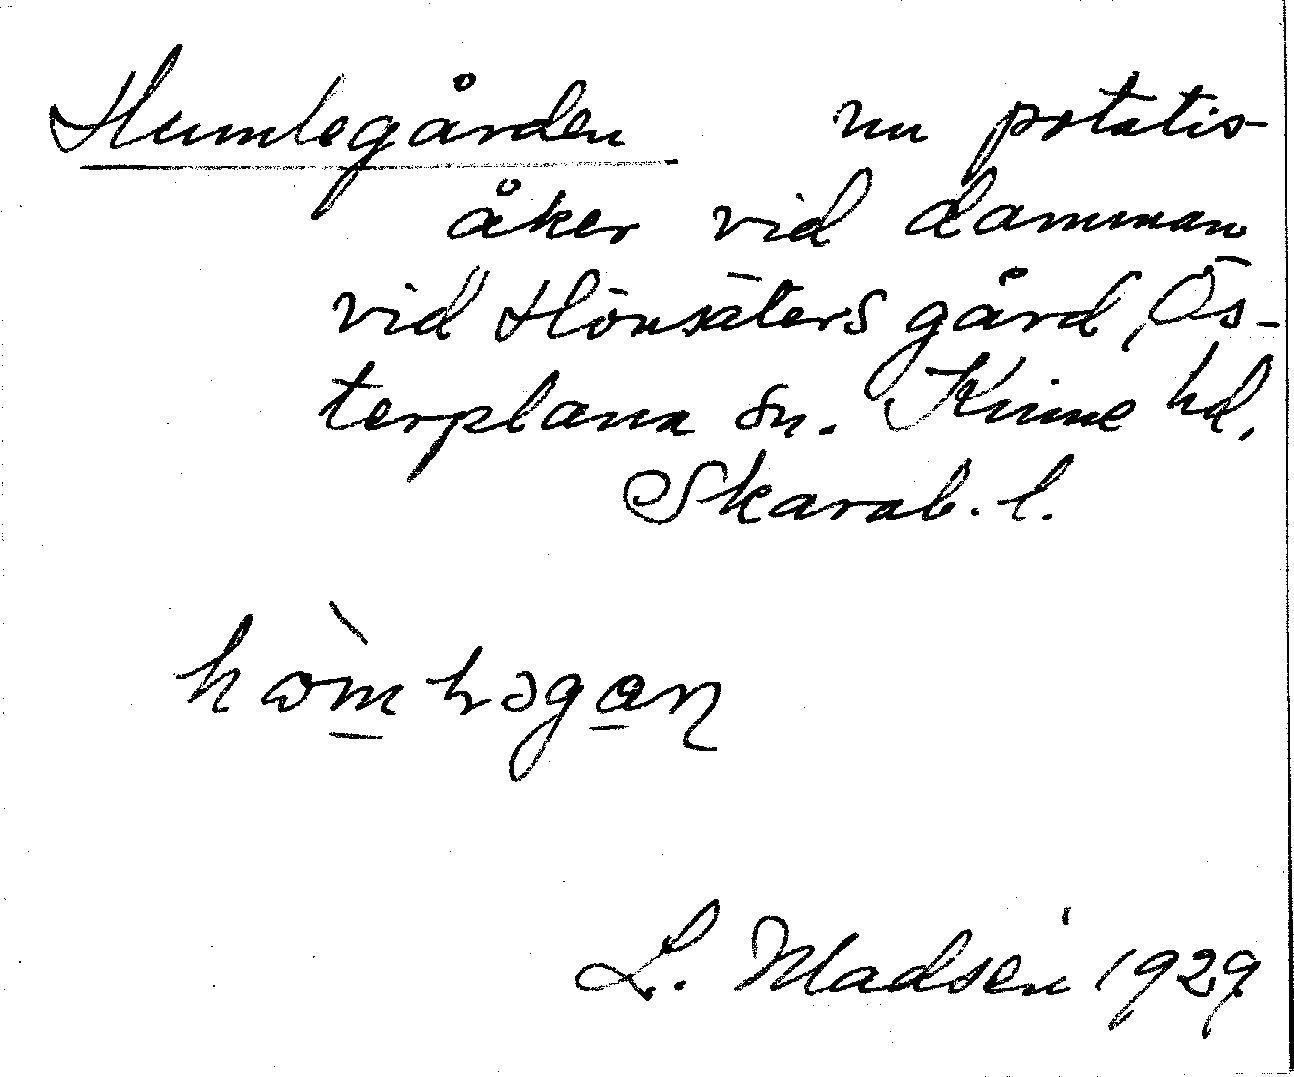 Humlegården nu potatis-
åker vid damman
vid Hönsäters gård, Ös-
terplana sn. Kinne hd,
Skarab. l.
L. Madsén 1929